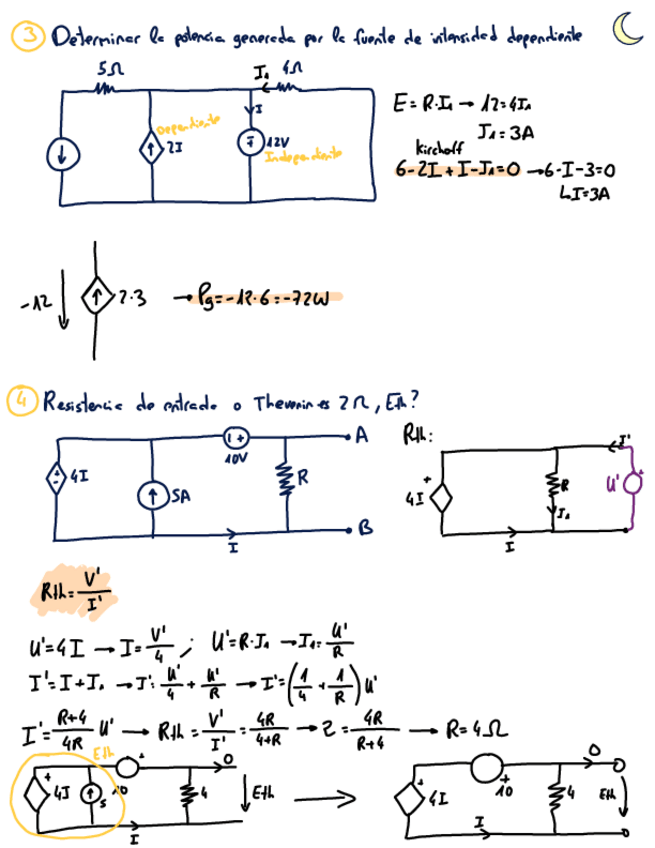 3 Determinar la potencia generada por la fuente de intensidad dependiente
5Ω I₁ 4Ω
Dependiente
2I
I
12V
Independiente
E = R·I₁ → 12 = 4I₁
I₁ = 3A
kirchoff
6-2I+I-I₁=0 → 6-I-3=0
I=3A
-12 2·3 → Pg=-12·6=-72W
4 Resistencia de entrada o Thevenin es 2Ω, Eth?
4I 5A 10V R A B I
Rth:
4I R I₁ I I' U'
Rth = V'/I'
U'=4I → I=V'/4 ; U'=R·I₁ → I₁=U'/R
I'=I+I₁ → I'=U'/4+U'/R → I'=(1/4+1/R)U'
I'=R+4/4R U' → Rth=V'/I'=4R/4+R → 2=4R/R+4 → R=4Ω
Eth
4I 5 10 4 0 Eth I → 4I 10 4 0 Eth I